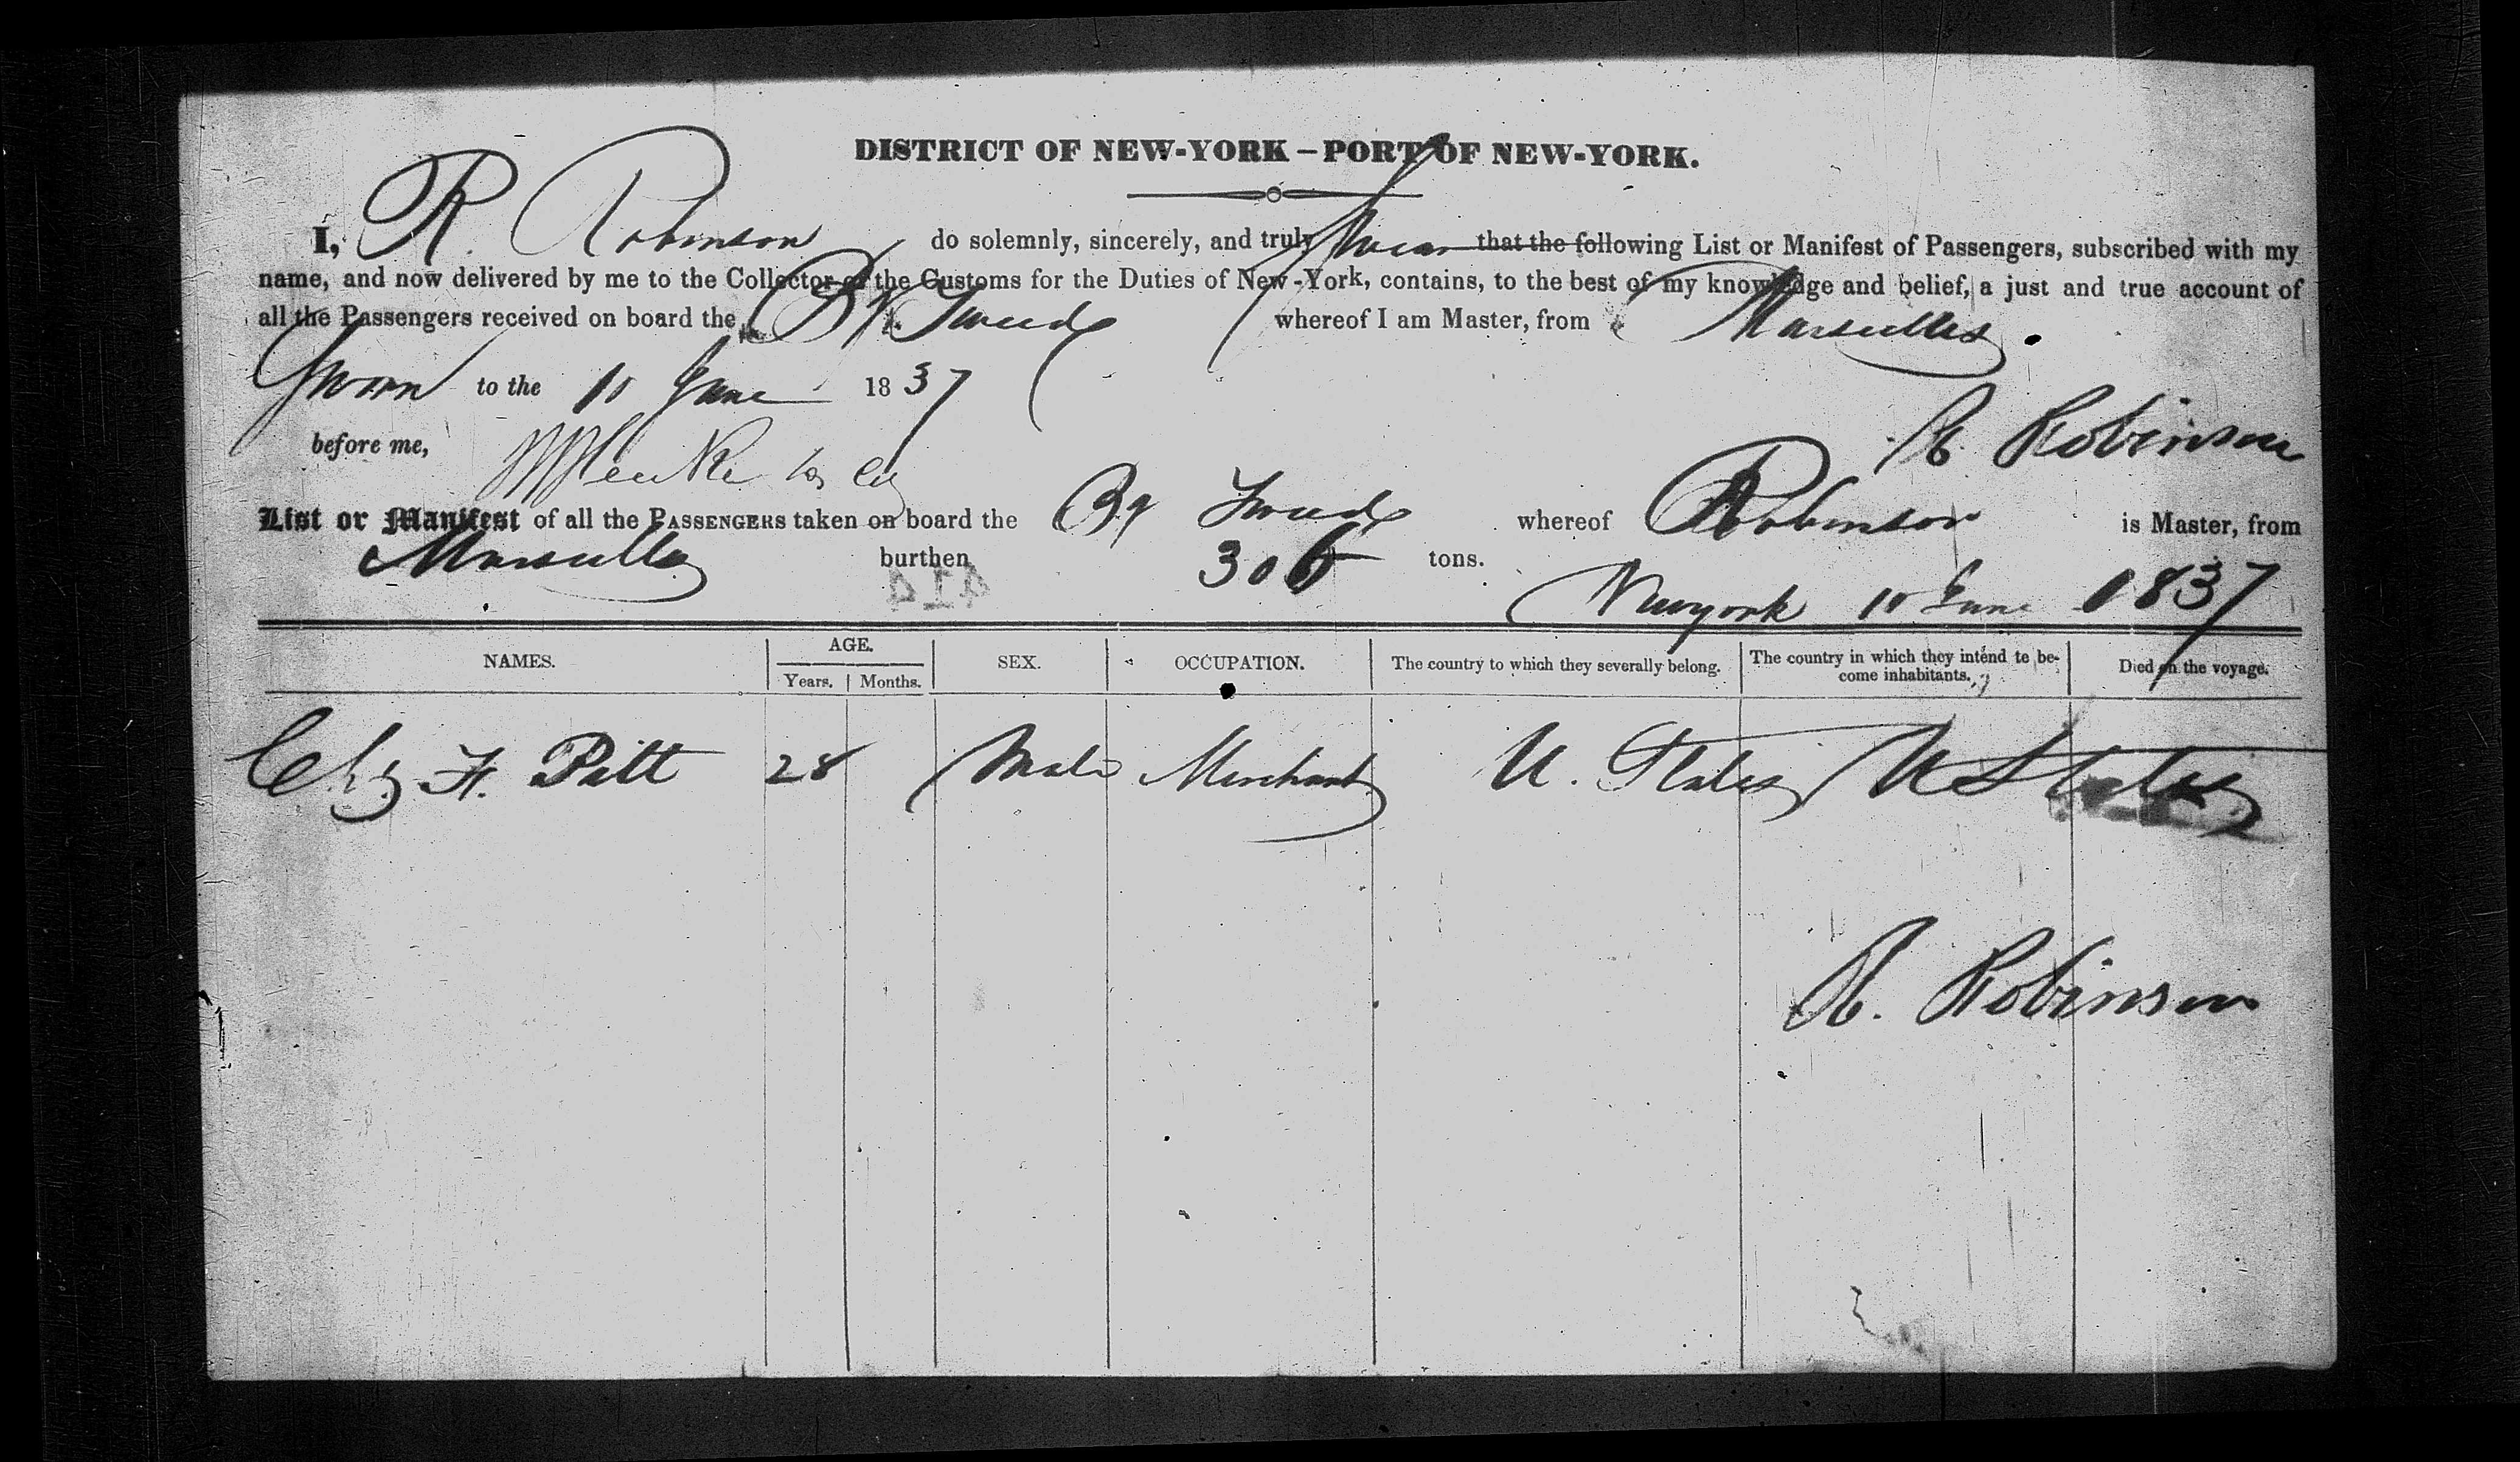 DISTRICT OF NEW-YORK – PORT OF NEW-YORK.
I, R. Robinson do solemnly, sincerely, and truly swear that the following List or Manifest of Passengers, subscribed with my
name, and now delivered by me to the Collector of the Customs for the Duties of New-York, contains, to the best of my knowledge and belief, a just and true account of
all the Passengers received on board the Tweed whereof I am Master, from Marseilles.
Sworn to the 10 June 1837
R. Robinson
before me,
List or Manifest of all the PASSENGERS taken on board the Tweed whereof Robinson is Master, from
Marseilles burthen 306 tons.
414
Newyork 10 June 1837
NAMES. AGE. SEX. OCCUPATION. The country to which they severally belong. The country in which they intend te be-
come inhabitants. Died on the voyage.
Years. Months.
F. Pitt 28 Male Merchant U. States U States
R. Robinson